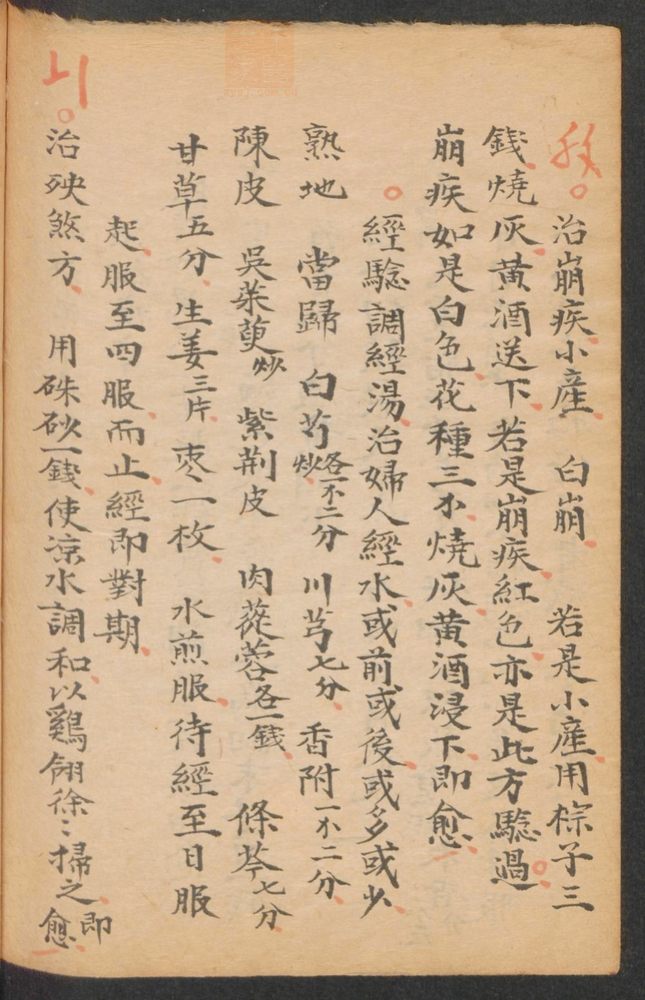 治崩疾小産 白崩 若是小産用棕子三
錢燒灰黃酒送下若是崩疾紅色亦是此方驗過
崩疾如是白色花種三小燒灰黃酒浸下即愈
經驗調經湯治婦人經水或前或後或多或少
熟地 當歸 白芍炒各一小二分 川芎七分 香附一小二分
陳皮 吳茱萸炒 紫荆皮 肉蓯蓉各一錢 條芩七分
甘草五分 生姜三片 枣一枚 水煎服待經至日服
起服至四服而止經即對期
治殃煞方 用硃砂一錢使凉水調和以鷄翎徐〻掃之即愈